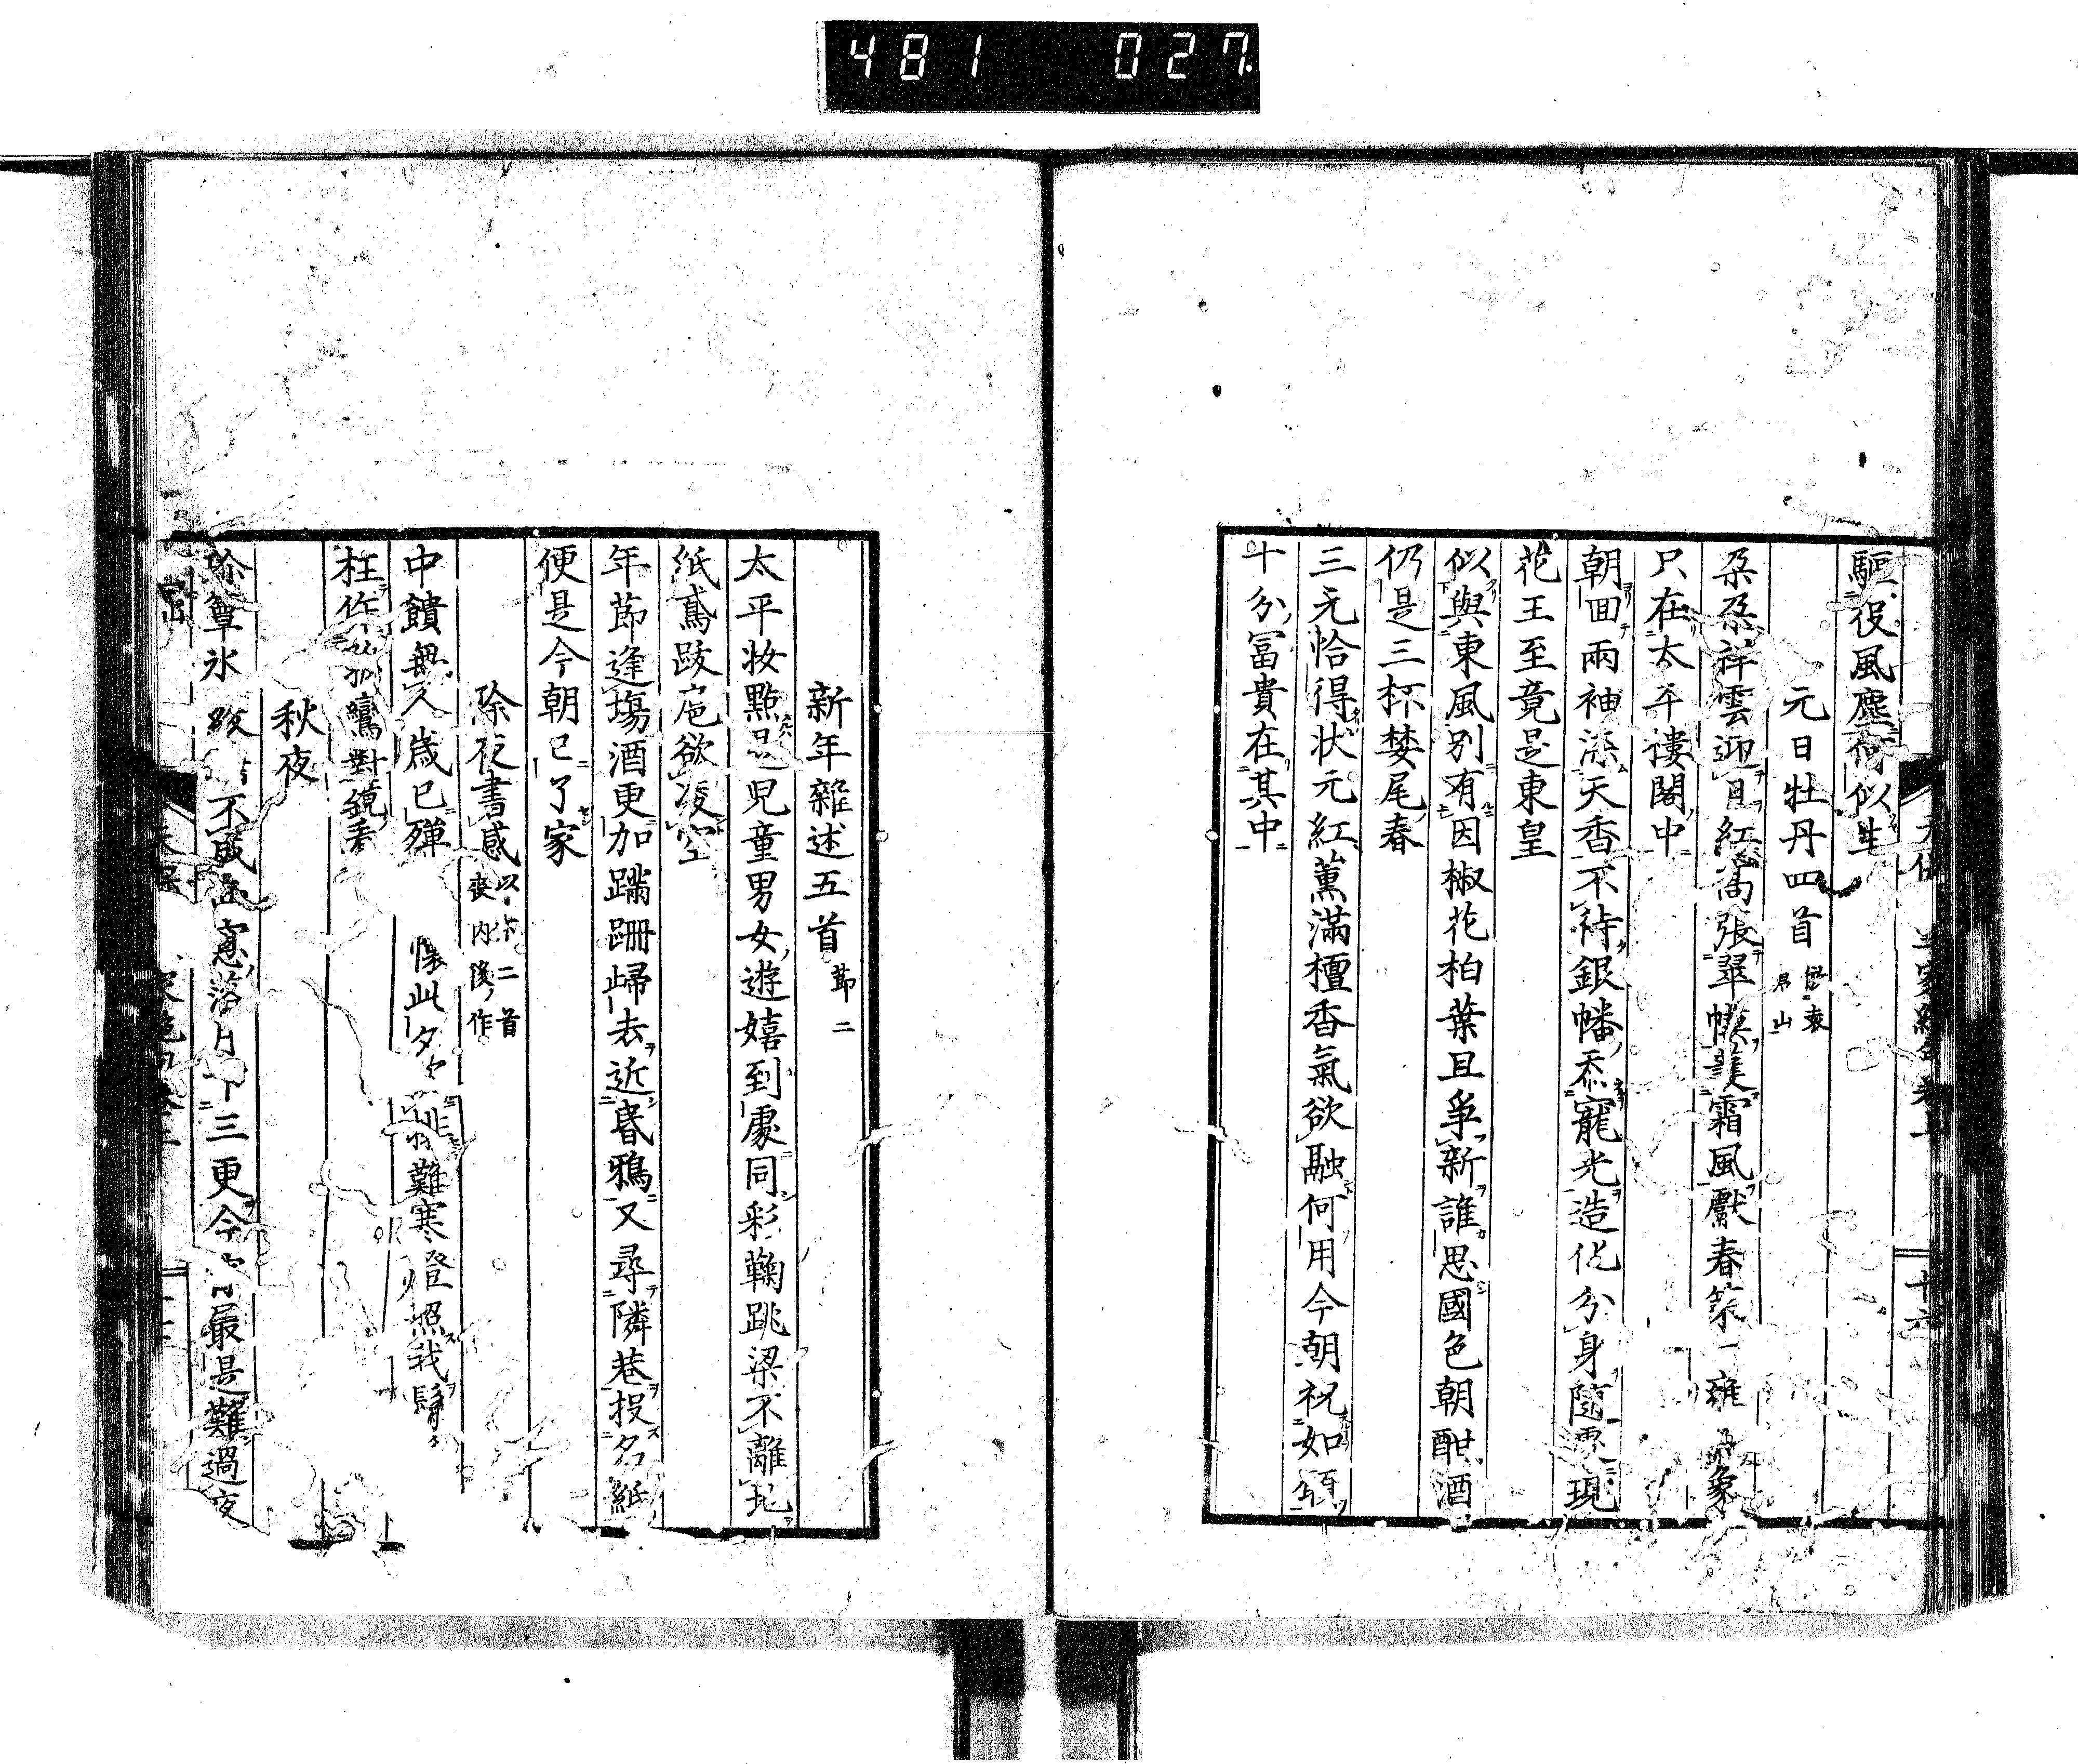 481 027
驅役風塵何似生
元日牡丹四首
君山
朶朶祥雲迎日紅高張翠幙護霜風獻春第一雍 象
只在太平樓閣中
朝回兩袖添天香不待銀幡忝寵光造化分身隨處現
花王至竟是東皇
似與東風別有因椒花柏葉且爭新誰思國色朝酣酒
仍是三杯婪尾春
三元恰得状元紅薫滿檀香氣欲融何用今朝祝如願
十分冨貴在其中
十六
新年雜述五首 節二
太平妝點是児童男女遊嬉到處同彩鞠跳梁不離地
紙鳶跋扈欲凌空
年節逢塲酒更加蹣跚歸去近昏鴉又尋隣巷投名紙
便是今朝已了家
除夜書感 以下二首
喪内後作
中饋無人歳已殫 懷此夕 排難寒燈照我鬢
枉作 孤鸞對鏡看
秋夜
簟氷 不成 窓落月下三更今 最是難過夜